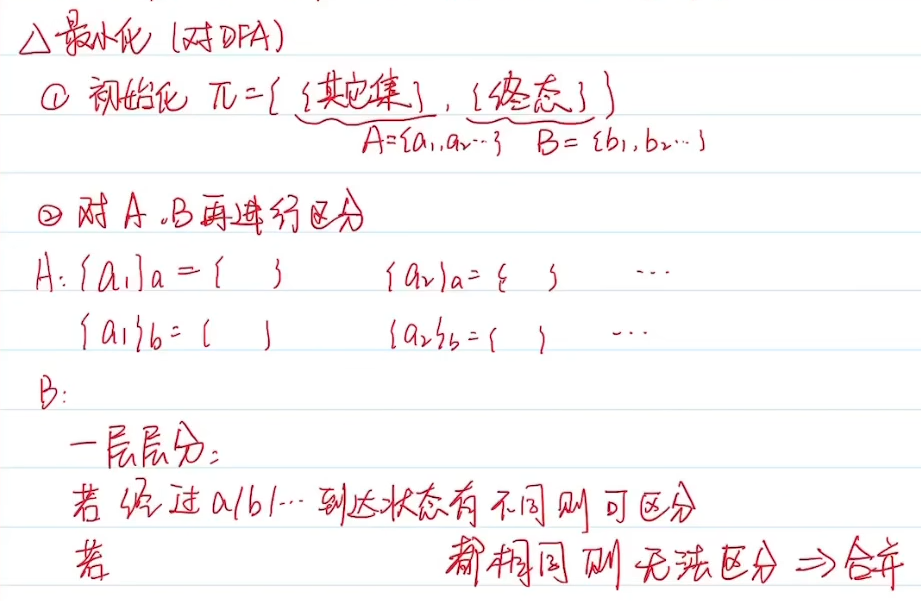 △最小化(对DFA)
① 初始化 π={{其它集},{终态}}
A={a₁,a₂…} B={b₁,b₂…}
② 对A、B再进行区分
A:{a₁}a={ } {a₂}a={ } …
{a₁}b={ } {a₂}b={ } …
B:
一层层分:
若经过a/b/…到达状态有不同则可区分
若 都相同则无法区分⇒合并